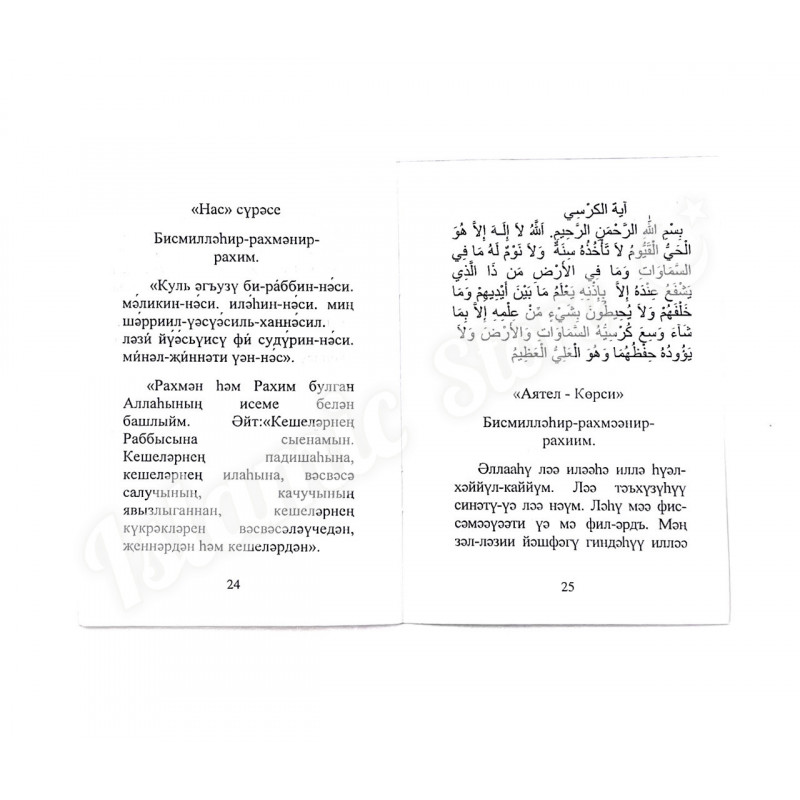 «Нас» сүрәсе
Бисмилләһир-рахмәнир-
рахим.
«Куль әгъузү би-ра́ббин-нә́си.
мә́ликин-нә́си. илә́һин-нә́си. миң
шәрриил-үәсүәсиль-ханнә́сил.
ләзи́ йүәсьүисү фи́ судү́рин-нә́си.
ми́нәл-җи́ннәти үән-нә́с».
«Рахмән һәм Рахим булган
Аллаһының исеме белән
башлыйм. Әйт:«Кешеләрнең
Раббысына сыенамын.
Кешеләрнең падишаһына,
кешеләрнең илаһына, вәсвәсә
салучының, качучының
явызлыганнан, кешеләрнең
күкрәкләрен вәсвәсәләүчедән,
җеннәрдән һәм кешеләрдән».
24
آية الكرْسِي
بِسْمِ اللهِ الرَّحْمَنِ الرَّحِيمِ. اَللَّهُ لاَ إِلَـهَ إِلاَّ هُوَ
الْحَيُّ الْقَيُّومُ لاَ تَأْخُذُهُ سِنَةٌ وَلاَ نَوْمٌ لَهُ مَا فِي
السَّمَاوَاتِ وَمَا فِي الأَرْضِ مَن ذَا الَّذِي
يَشْفَعُ عِنْدَهُ إِلاَّ بِإِذْنِهِ يَعْلَمُ مَا بَيْنَ أَيْدِيهِمْ وَمَا
خَلْفَهُمْ وَلاَ يُحِيطُونَ بِشَيْءٍ مِّنْ عِلْمِهِ إِلاَّ بِمَا
شَاءَ وَسِعَ كُرْسِيُّهُ السَّمَاوَاتِ وَالأَرْضَ وَلاَ
يَؤُودُهُ حِفْظُهُمَا وَهُوَ الْعَلِيُّ الْعَظِيمُ
«Аятел - Көрси»
Бисмилләһир-рахмәәнир-
рахиим.
Әллааһү ләә иләәһә иллә һүәл-
хәййүл-каййүм. Ләә тәъхүзүһүү
синәтү-үә ләә нәүм. Ләһү мәә фис-
сәмәәүәәти үә мә фил-әрдъ. Мәң
зәл-ләзии йәшфәгү гиндәһүү илләә
25
Islamic